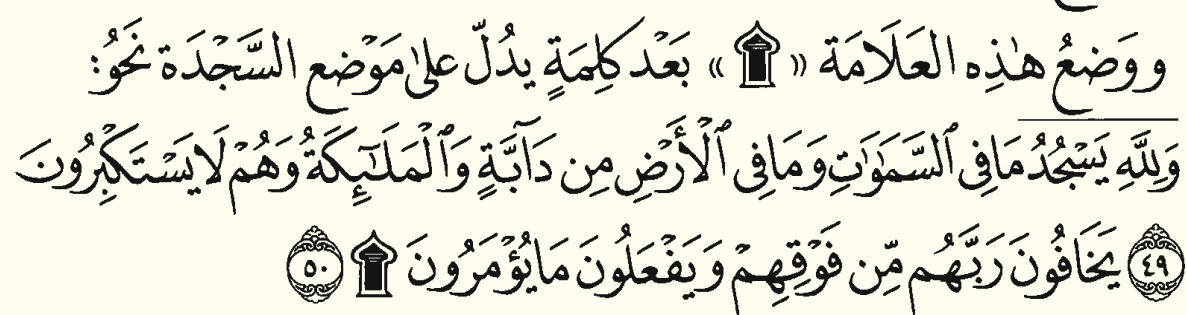 ووَضعُ هٰذِه العَلَامَة «۩» بَعْد كَلِمَةٍ يدُلّ علىٰ مَوْضع السَّجْدَة نَحْوُ:
وَلِلَّهِ يَسْجُدُ مَا فِي ٱلسَّمَٰوَٰتِ وَمَا فِي ٱلْأَرْضِ مِن دَآبَّةٍ وَٱلْمَلَٰٓئِكَةُ وَهُمْ لَا يَسْتَكْبِرُونَ
٤٩ يَخَافُونَ رَبَّهُم مِّن فَوْقِهِمْ وَيَفْعَلُونَ مَا يُؤْمَرُونَ ۩ ٥٠